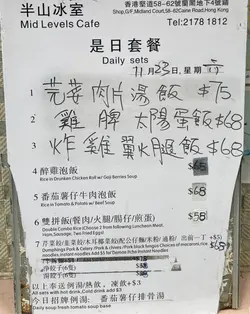 半山冰室
Mid Levels Cafe
香港堅道58-62號蘭閣地下4號鋪
Shop,G/F,Midland Court,58-62Caine Road,Hong Kong
Tel:2178 1812
是日套餐
Daily sets
11月23,星期六
1 芫荽肉片湯飯 $75
2 雞脾太陽蛋飯 $68
3 炸雞翼火腿飯 $68
4 醉雞泡飯
Rice in Drunken Chicken Roll w/ Goji Berries Soup
5 番茄薯仔牛肉泡飯 $68
Rice in Tomato & Potato w/ Beef Soup
6 雙拼飯(餐肉/火腿/腸仔/煎蛋) $58
Double Combo Rice (Choose 2 from following Luncheon Meat,
Ham, Sausage, Two Fried Eggs)
以上奉送例湯/熱飲, 凍飲+$3
All sets with hot drink, Cold drink add $3
今日招牌例湯: 番茄薯仔排骨湯
Daily soup fresh tomato soup base